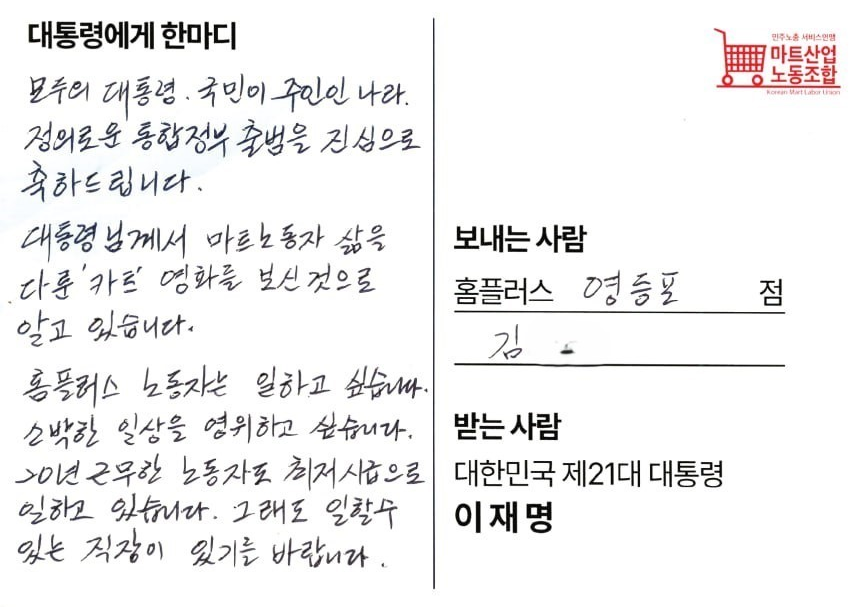 대통령에게 한마디
모두의 대통령. 국민이 주인인 나라.
정의로운 통합정부 출범을 진심으로
축하드립니다.
대통령님께서 마트노동자 삶을
다룬 '카트' 영화를 보신것으로
알고 있습니다.
홈플러스 노동자는 일하고 싶습니다.
소박한 일상을 영위하고 싶습니다.
20년 근무한 노동자도 최저시급으로
일하고 있습니다. 그래도 일할수
있는 직장이 있기를 바랍니다.
민주노총 서비스연맹
마트산업
노동조합
Korean Mart Labor Union
보내는 사람
홈플러스 영등포 점
김
받는 사람
대한민국 제21대 대통령
이재명